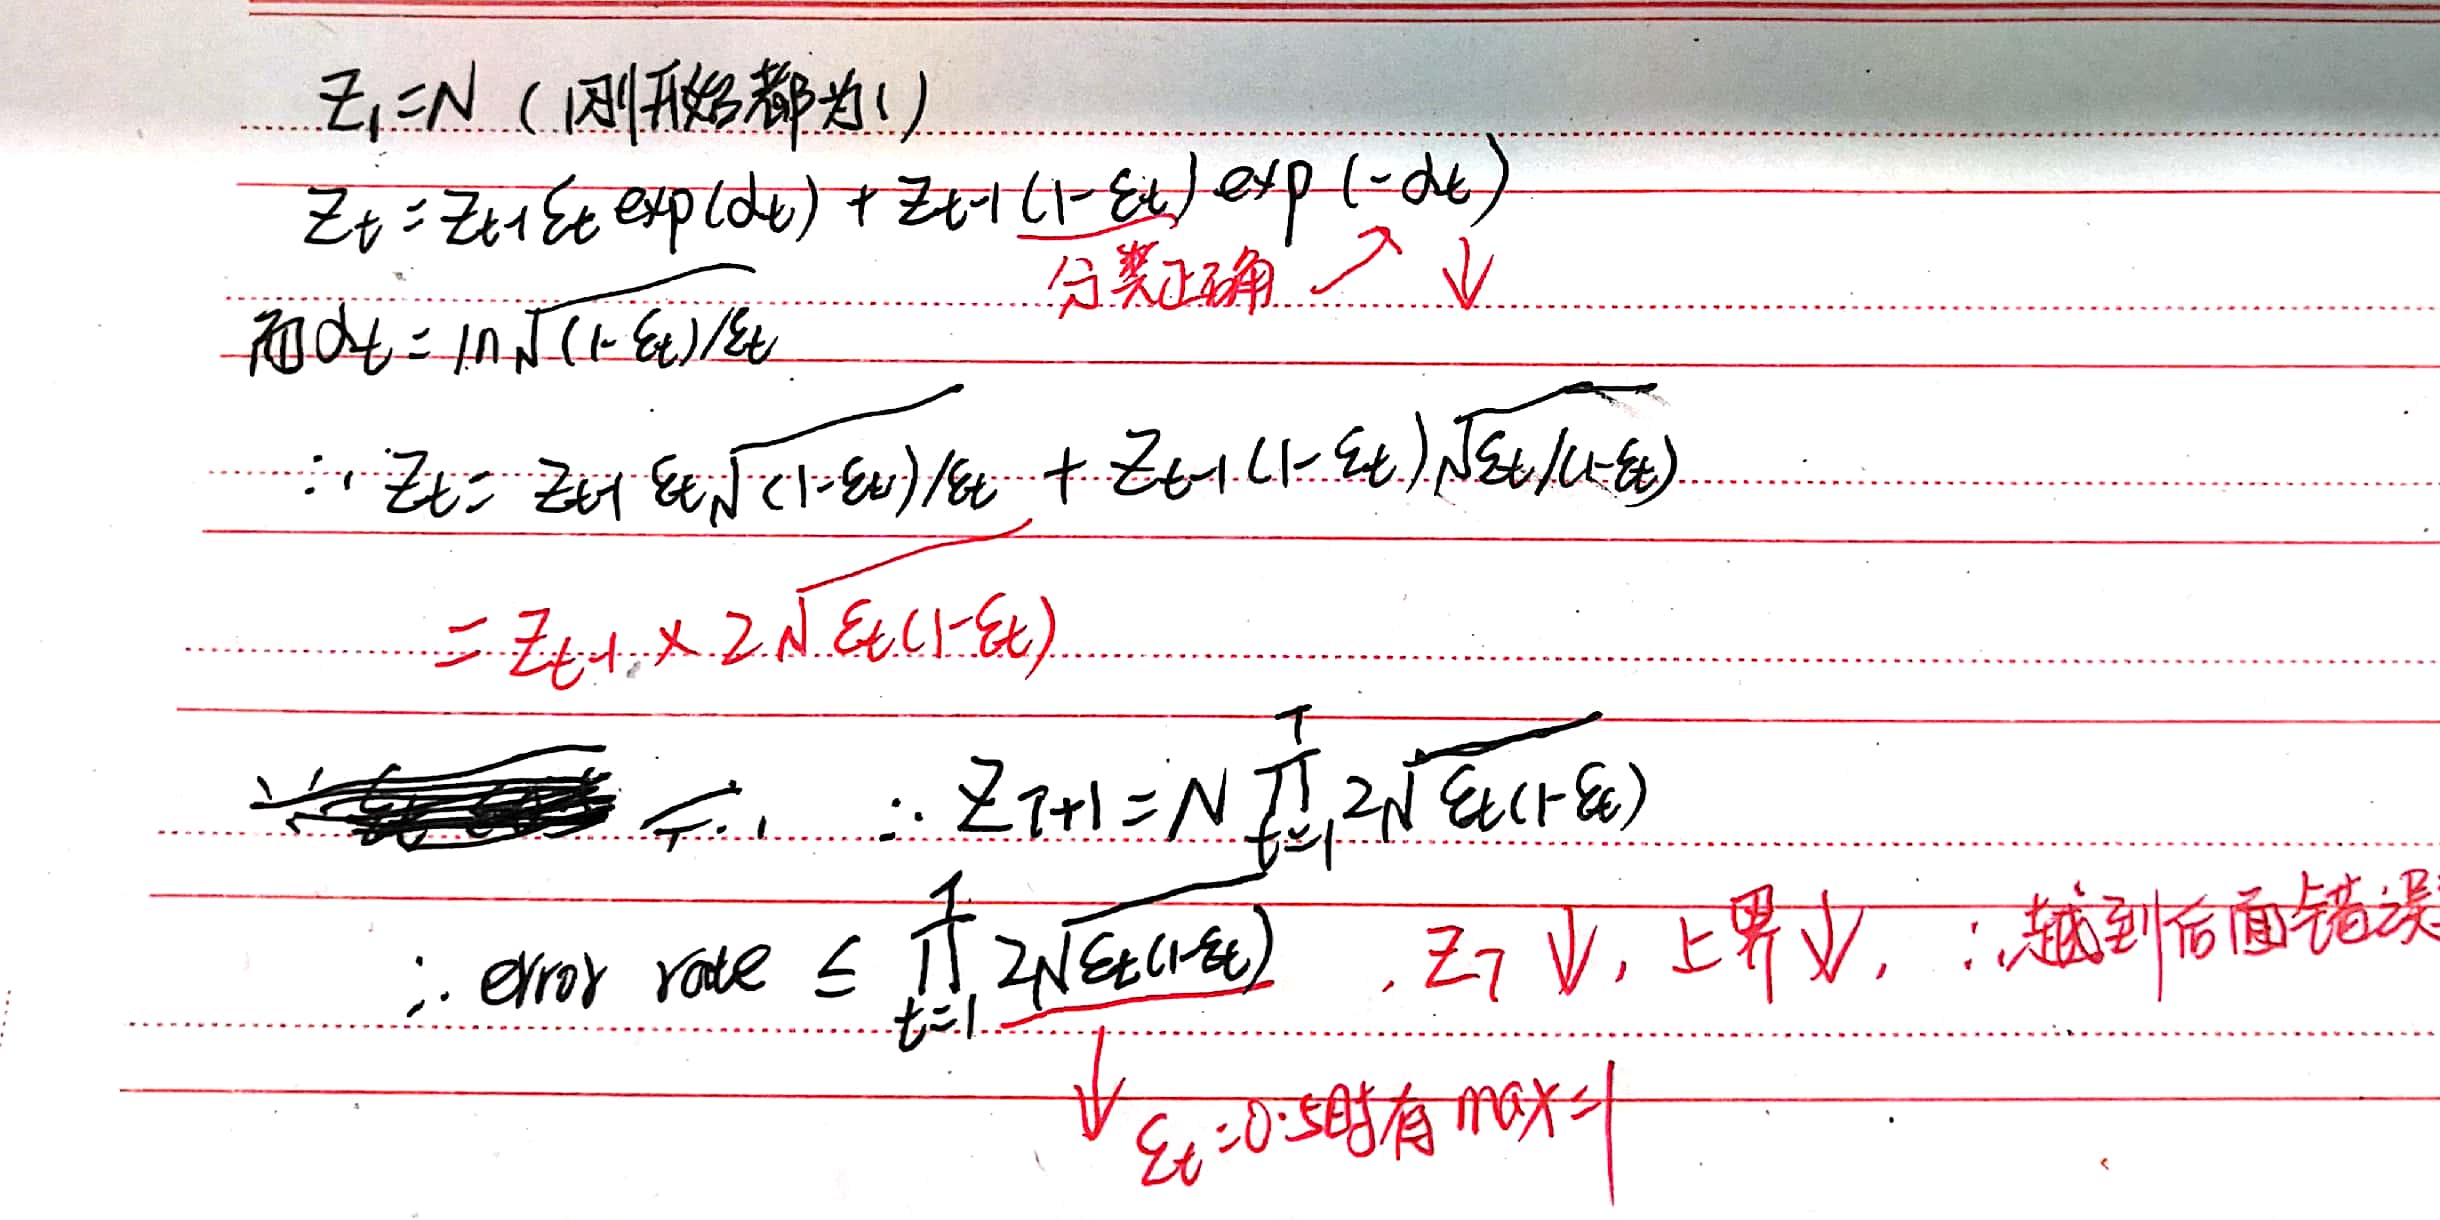 Z₁=N (刚开始都为1)
Zt = Zt-1 εt exp(αt) + Zt-1 (1-εt) exp(-αt)
分类正确 ↗ ↓
而αt = ln√(1-εt)/εt
∴ Zt = Zt-1 εt√(1-εt)/εt + Zt-1 (1-εt)√εt/(1-εt)
= Zt-1 × 2√εt(1-εt)
∴ ZT+1 = N ∏ᵀt=1 2√εt(1-εt)
∴ error rate ≤ ∏ᵀt=1 2√εt(1-εt) , ZT ↓, 上界↓, ∴越到后面错误
↓ εt=0.5时有 max=1